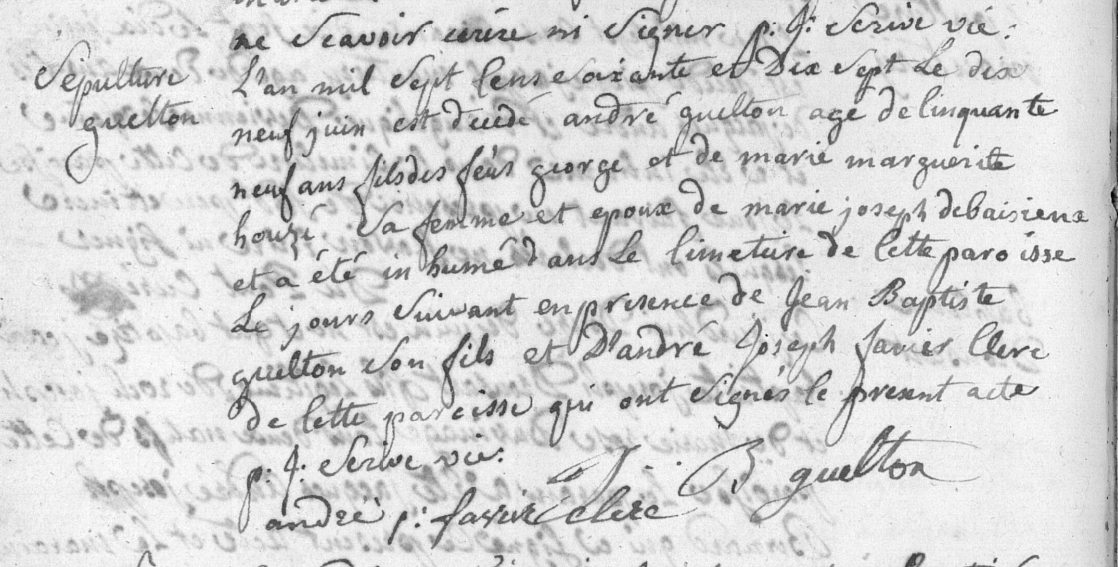 ne Scavoir ecrire ni Signer p. J: Scrive vic:
Sépulture
guelton
L'an mil Sept Cens Soixante et Dix Sept Le dix
neuf juin est décédé andré guelton age de Cinquante
neuf ans fils des feus george et de marie marguerite
houzé Sa femme et epoux de marie joseph debaisieux
et à été inhumé dans Le Cimetiere de Cette paroisse
Le jours Suivant en presence de Jean Baptiste
guelton Son fils et D'andré Joseph favier Clerc
de Cette paroisse qui ont Signés le present acte
p. J: Scrive vic:
J. B guelton
andré j: favier clerc